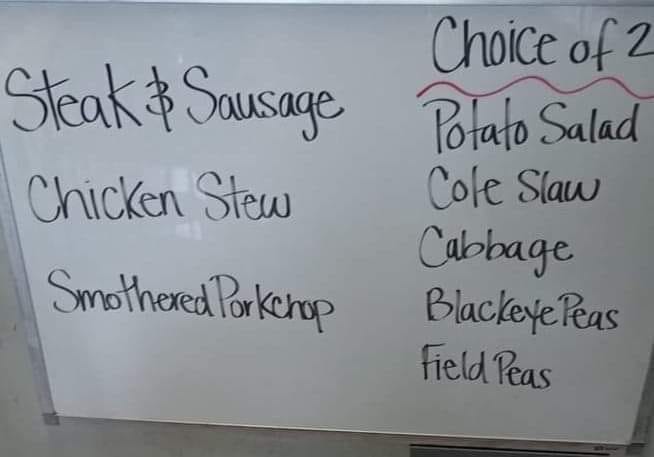 Steak & Sausage
Chicken Stew
Smothered Porkchop
Choice of 2
Potato Salad
Cole Slaw
Cabbage
Blackeye Peas
Field Peas